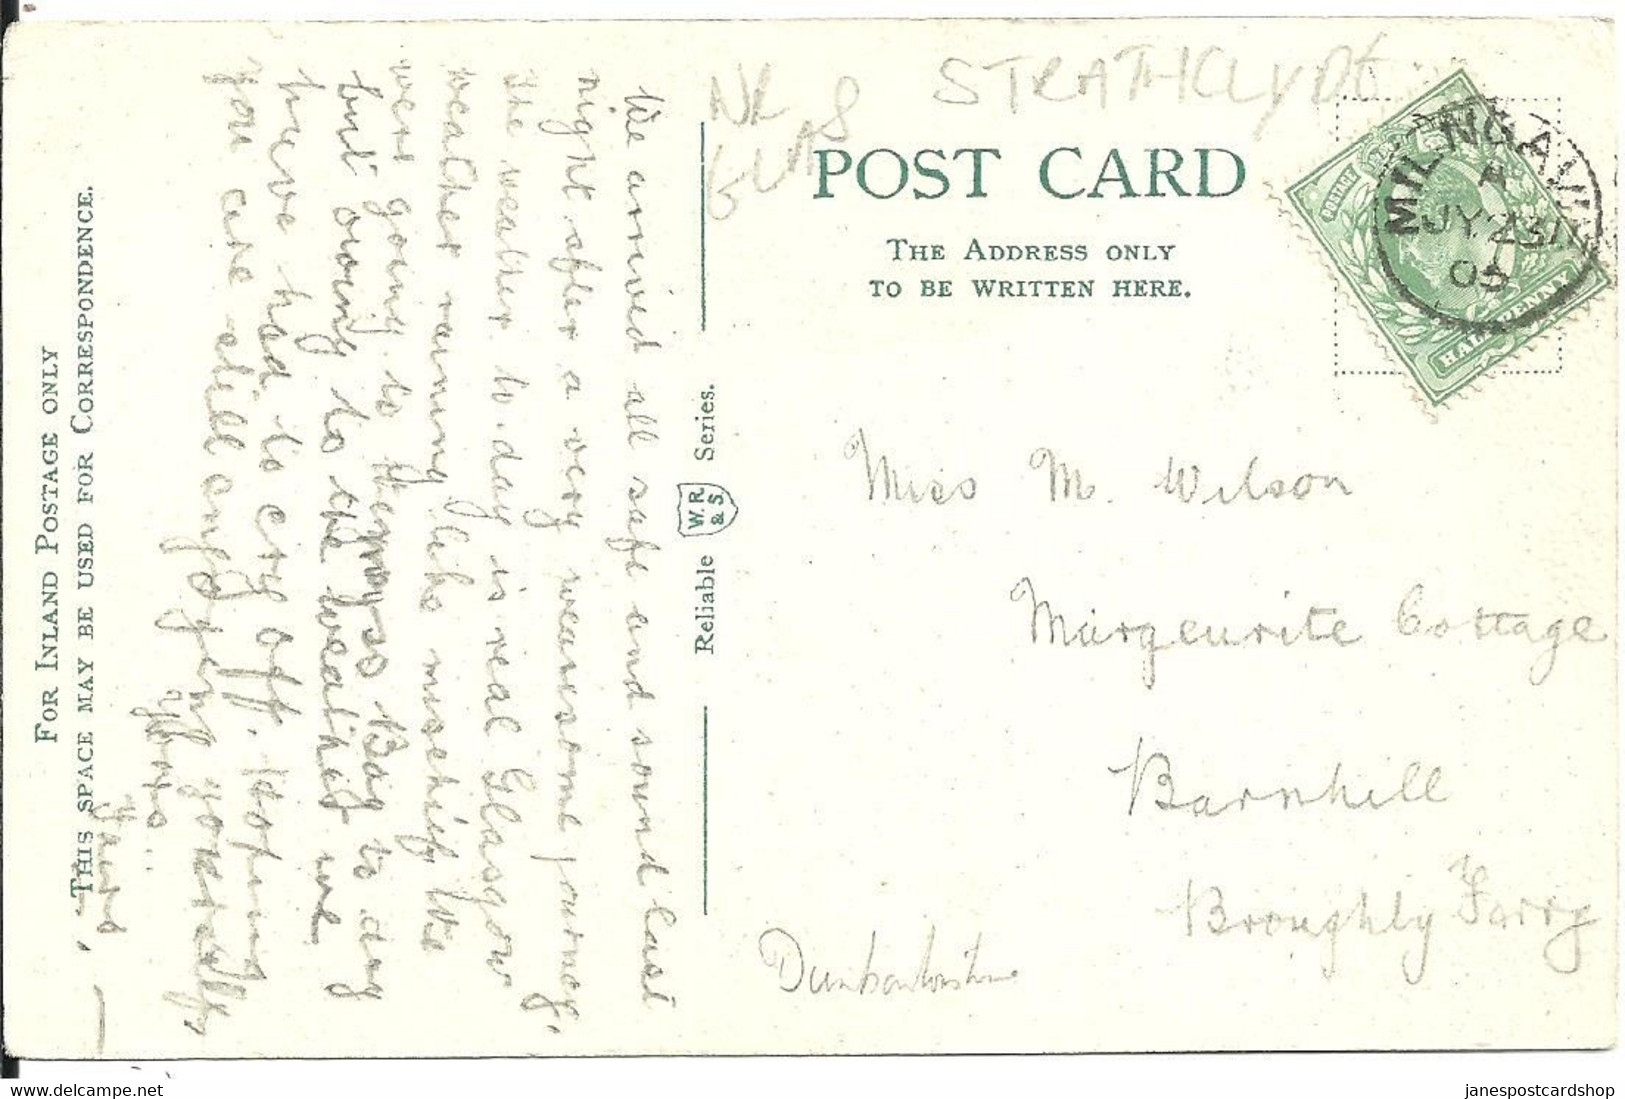 NR
GLAS
STRATHCLYDE
POST CARD
THE ADDRESS ONLY
TO BE WRITTEN HERE.
MILNGAVIE
A
JY 23
05
POSTAGE
HALFPENNY
Miss M. Wilson
Margeurite Cottage
Barnhill
Broughty Ferry
Dunbartonshire
Reliable W.R. & S. Series.
We arrived all safe and sound last
night after a very wearisome journey.
The weather to-day is real Glasgow
weather raining like mischief. We
were going to Wemyss Bay to day
but owing to the weather we
have had to cry off. Hoping
you are still enjoying yourself,
Yours..
FOR INLAND POSTAGE ONLY
THIS SPACE MAY BE USED FOR CORRESPONDENCE.
janespostcardshop
www.delcampe.net